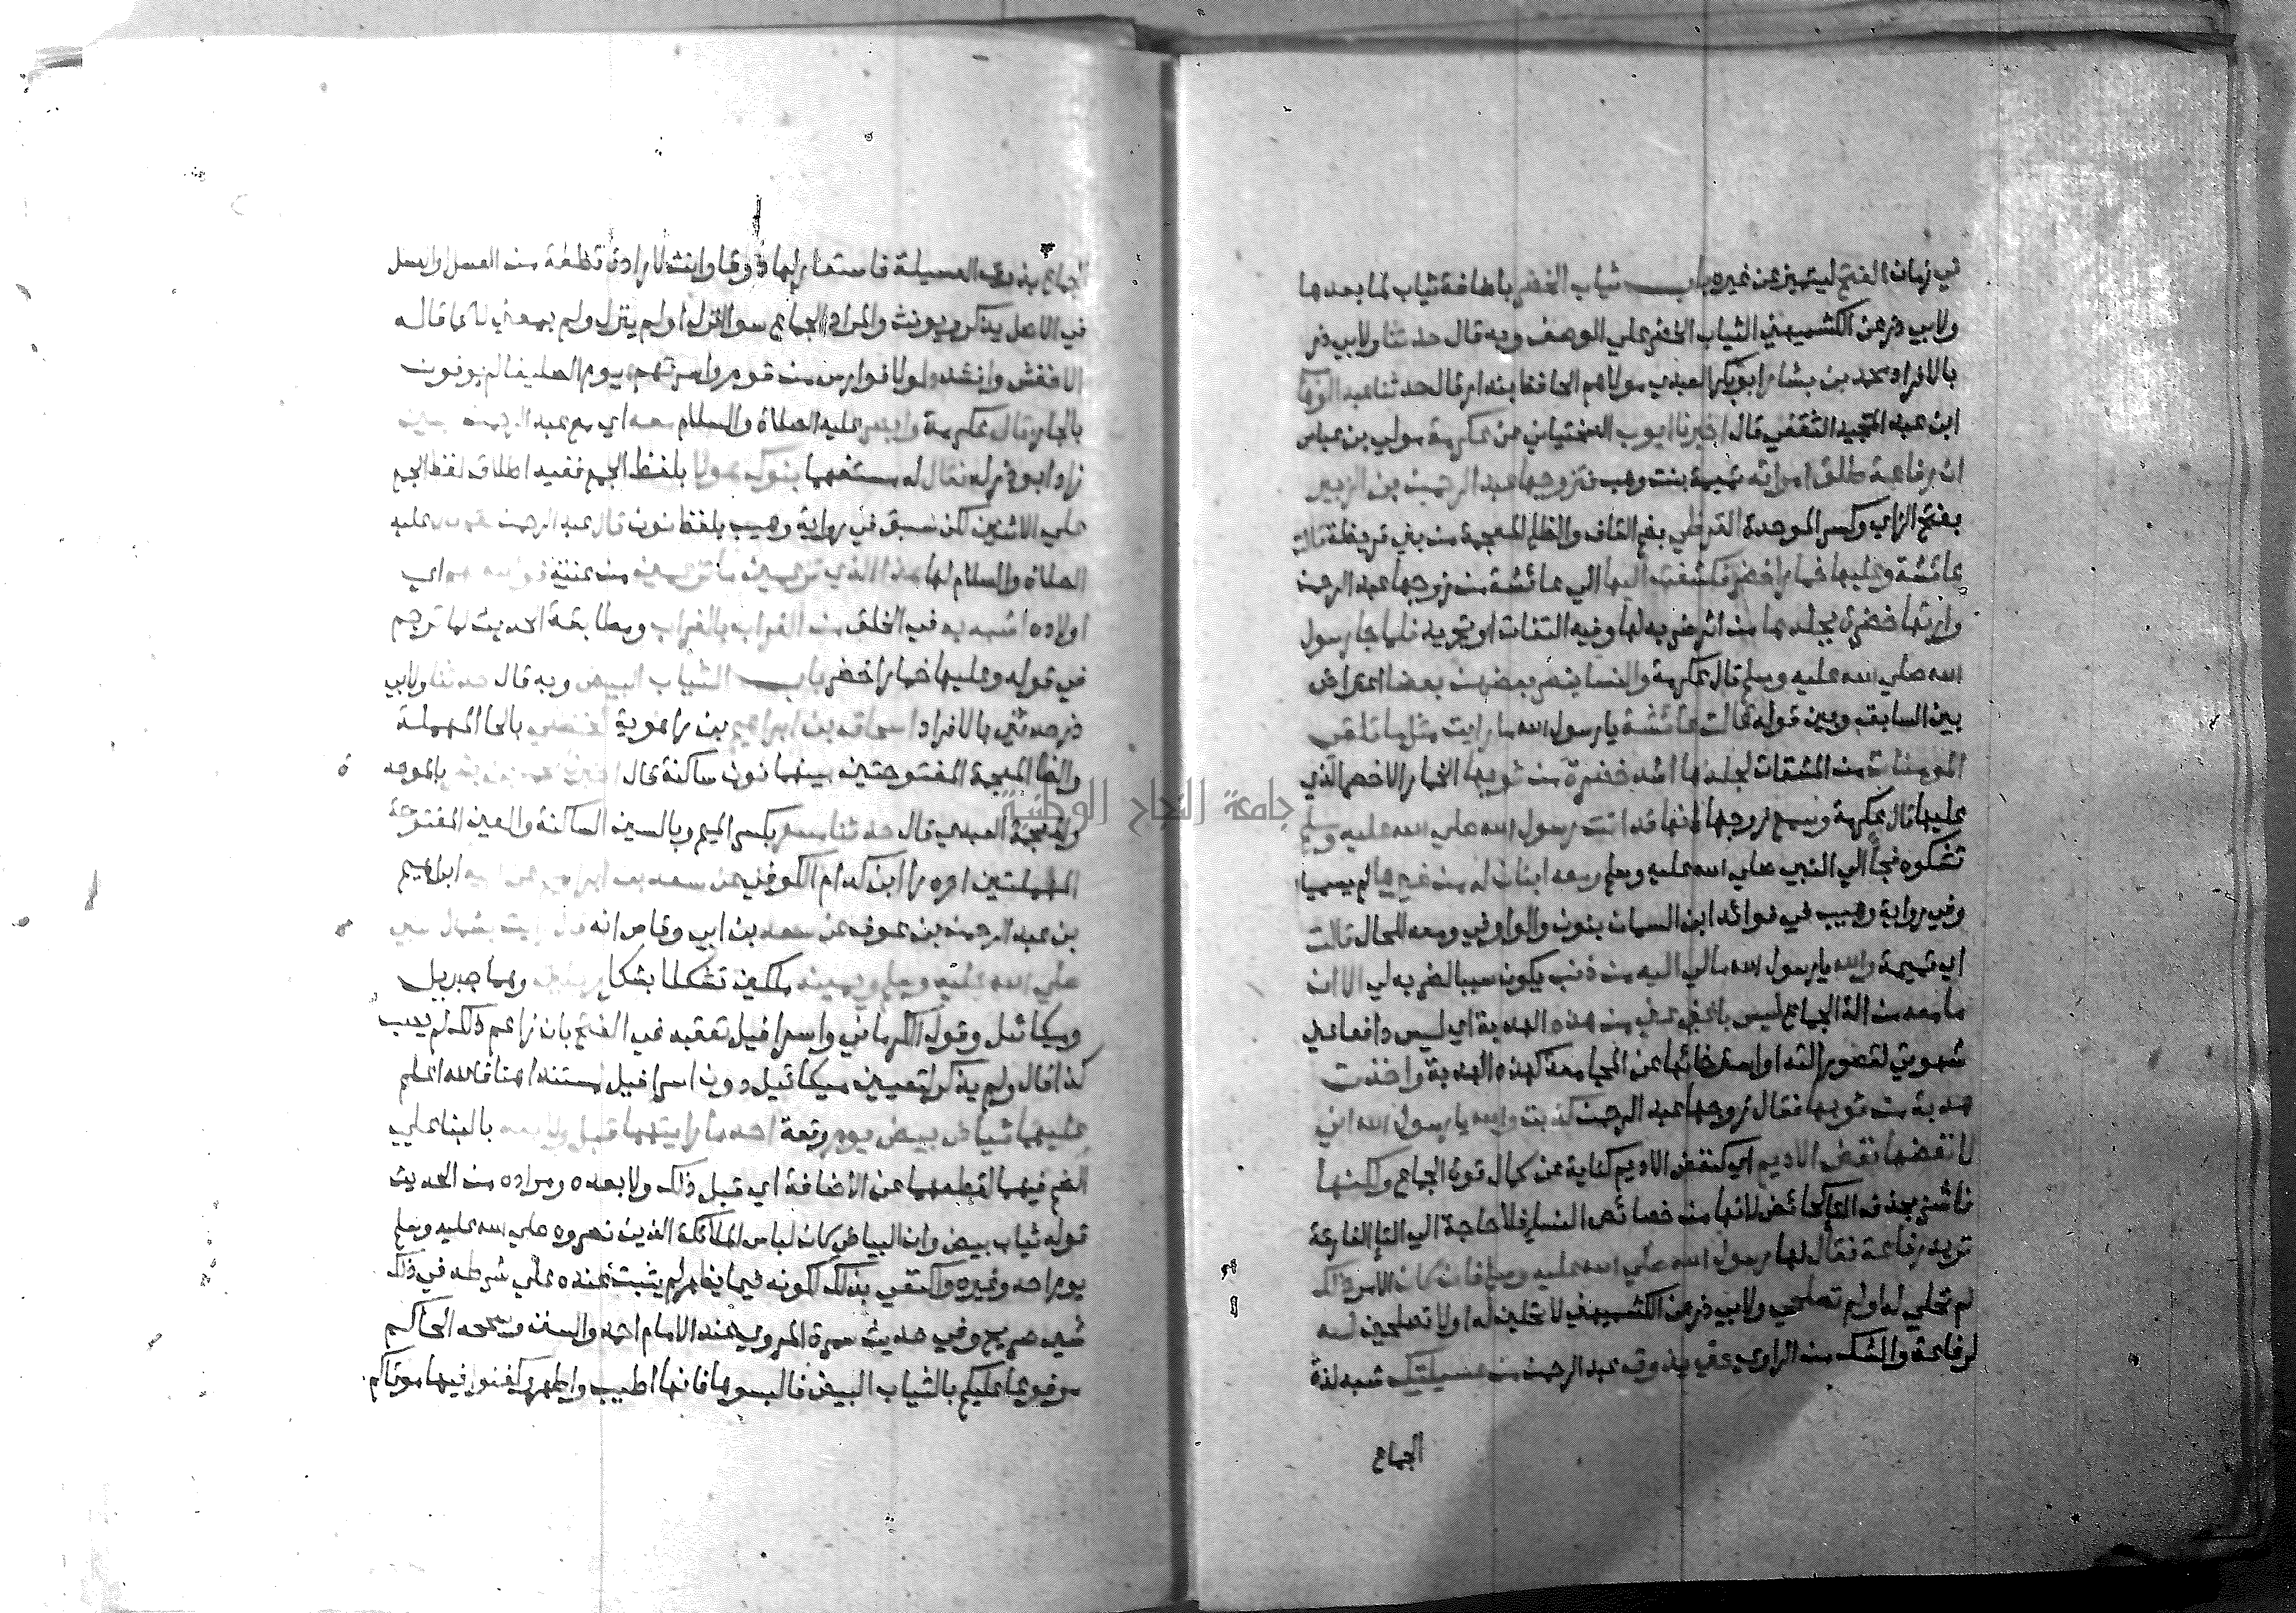 في زمان الفتح ليتميز عن غيره باب ثياب الخضر باضافة ثياب لما بعدها
ولابي ذر عن الكشميهني الثياب الخضر علي الوصف وبه قال حدثنا ولابي ذر
بالافراد محمد بن بشار ابو بكر العبدي مولاهم الحافظ بندار قال حدثنا عبد الوهاب
ابن عبد المجيد الثقفي قال اخبرنا ايوب السختياني عن عكرمة مولي بن عباس
ان رفاعة طلق امراته تميمة بنت وهب فتزوجها عبد الرحمن بن الزبير
بفتح الزاي وكسر الموحدة القرظي بضم القاف والظا المعجمة من بني قريظة قالت
عائشة وعليها خمار اخضر فشكت اليها الي عائشة من زوجها عبد الرحمن
وارتها خضرة بجلدها من اثر ضربه لها وفيه التفات او تجريد فلما جا رسول
الله صلي الله عليه وسلم قال عكرمة والنسا ينصر بعضهن بعضا اعتراض
بين السابق وبين قوله قالت عائشة يا رسول الله ما رايت مثل ما تلقي
المومنات من المشقات لجلدها اشد خضرة من ثوبها الخمار الاخضر الذي
عليها قال عكرمة وسمع زوجها انها قد اتت رسول الله صلي الله عليه وسلم
تشكوه فجا الي النبي صلي الله عليه وسلم ومعه ابنان له من غيرها لم يسميا
وفي رواية وهيب في فوائد ابن السماك بنون والواو في ومعه للحال قالت
اي تميمة والله يا رسول الله مالي اليه من ذنب يكون سببا لضربه لي الا ان
ما معه من الة الجماع ليس باغني عني من هذه الهدبة اي ليس دافعا عني
شهوتي لقصور الته او استرخائها عن المجامعة كهذه الهدبة واخذت
هدبة من ثوبها فقال زوجها عبد الرحمن كذبت والله يا رسول الله اني
لانفضها نفض الاديم اي كنفض الاديم كناية عن كمال قوة الجماع ولكنها
ناشز بحذف التا كحائض لانها من خصائص النسا فلا حاجة الي التا الفارقة
تريد رفاعة فقال لها رسول الله صلي الله عليه وسلم فان كان الامر ذلك
لم تحلي له او لم تصلحي ولابي ذر عن الكشميهني لا تحلين له او لا تصلحين له
لرفاعة والشك من الراوي حتي يذوق عبد الرحمن من عسيلتك شبه لذة
الجماع
الجماع بذوق العسيلة فاستعار لها ذوقا وانث لارادة قطعة من العسل والعسل
في الاصل يذكر ويونث والمراد الجماع سوا انزل او لم ينزل ولم بمعني لا كما قاله
الاخفش وانشد لولا فوارس من قوم واسرتهم يوم الصليفا لم يوفون
بالجار قال عكرمة وابصر عليه الصلاة والسلام معه اي مع عبد الرحمن
زاد ابو ذر له فقال له مستفهما بنوك هولا بلفظ الجمع ففيه اطلاق لفظ الجمع
علي الاثنين لكن سبق في رواية وهيب بلفظ بنون قال عبد الرحمن عليه
الصلاة والسلام لها هذا الذي تزعمين ما تزعمين من عنته اي
اولاده اشبه به في الخلق من الغراب بالغراب ومطابقة الحديث لما ترجم
في قوله وعليها خمار اخضر باب الثياب البيض وبه قال حدثنا ولابي
ذر حدثني بالافراد اسحاق بن ابراهيم بن راهوية الحنظلي بالحا المهملة
والظا المعجمة المفتوحتين بينهما نون ساكنة قال بالموحدة
والمعجمة العبدي قال حدثنا مسعر بكسر الميم وبالسين الساكنة والعين المفتوحة
المهملتين اخره را ابن كدام الكوفي عن سعد بن ابراهيم عن ابيه ابراهيم
بن عبد الرحمن بن عوف عن سعد بن ابي وقاص انه قال رايت بشمال النبي
صلي الله عليه وسلم ويمينه ملكين تشكلا بشكل وهما جبريل
وميكائيل وقول الكرماني واسرافيل تعقبه في الفتح بان زاعم ذلك لم يصب
كذا قال ولم يذكر لتعيين ميكائيل دون اسرافيل مستندا هنا فالله اعلم
عليهما ثياب بيض يوم وقعة احد ما رايتهما قبل ولا بعد بالبنا علي
الضم فيهما لقطعهما عن الاضافة اي قبل ذلك ولا بعده ومراده من الحديث
قوله ثياب بيض وان البياض كان لباس الملائكة الذين نصروه صلي الله عليه وسلم
يوم احد وغيره واكتفي بذلك لكونه فيما يظهر لم يثبت عنده علي شرطه في ذلك
شي صريح وفي حديث سمرة المروي عند الامام احمد والسنن وصححه الحاكم
مرفوعا عليكم بالثياب البيض فالبسوها فانها اطيب واطهر وكفنوا فيها موتاكم
جامعة النجاح الوطنية